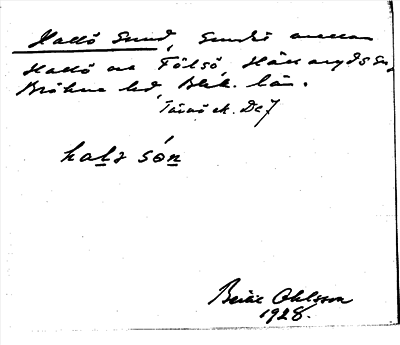 Hallö Sund, Sundet mellan
Hallö och Fölsö, Hällaryds sn,
Bräkne hd, Blek. län.
Tärnö ek. De 7
halz són
Bertil Ohlsson
1928.